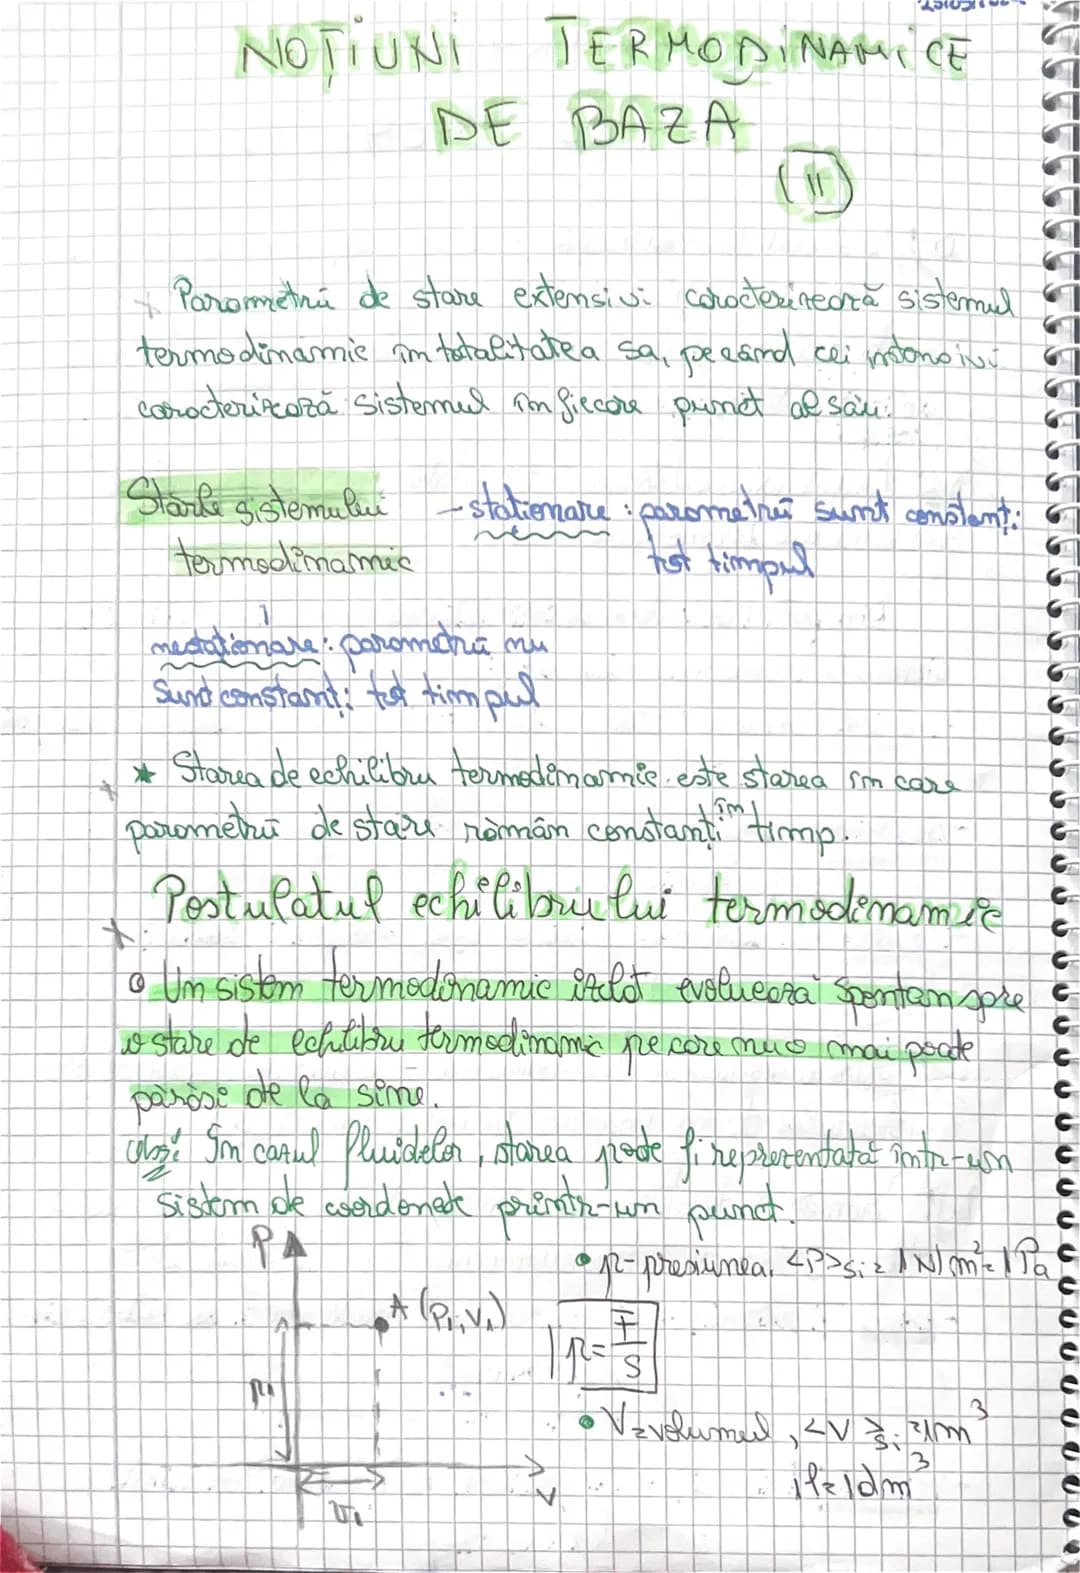 NOȚIUNI TERMODINAMICE
DE BAZA
(II)
Parametrii de stare extensivi caracterizează sistemul
termodinamic în totalitatea sa, pecând cei intensivi
caracterizează sistemul în fiecare punct al său.
Stările sistemului - staționare : parametrii sunt constanți
termodinamic tot timpul
nestaționare: parametrii nu
sunt constanți tot timpul
* Starea de echilibru termodinamic este starea în care
parametrii de stare rămân constanți în timp.
Postulatul echilibrului termodinamic
Un sistem termodinamic izolat evoluează spontan spre
o stare de echilibru termodinamic pe care nu o mai poate
părăsi de la sine.
Obs! În cazul fluidelor, starea poate fi reprezentată într-un
sistem de coordonate printr-un punct.
P
• p-presiunea, <P>si = 1N/m² = 1Pa
A (P₁, V₁)
p = F/S
p₁
• V=volumul, <V>si = 1m³
1l = 1dm³
V
V₁